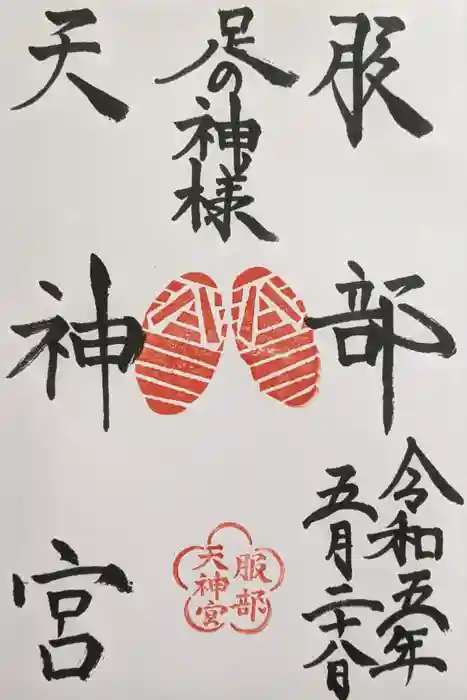 服部
令和五年
五月二十八日
足の神様
天神宮
服部
天神宮